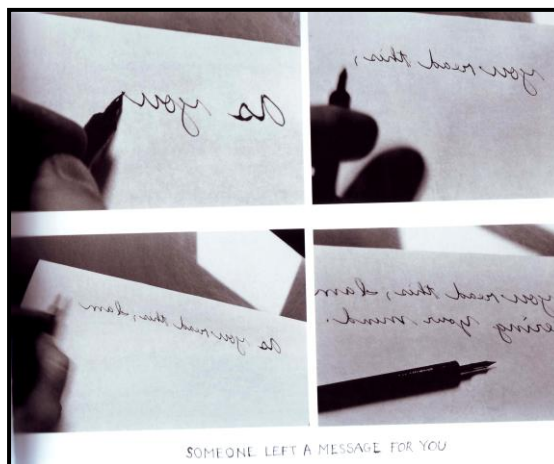 As you
you read this,
As you read this, I am
you read this, I am
ering your mind.
SOMEONE LEFT A MESSAGE FOR YOU